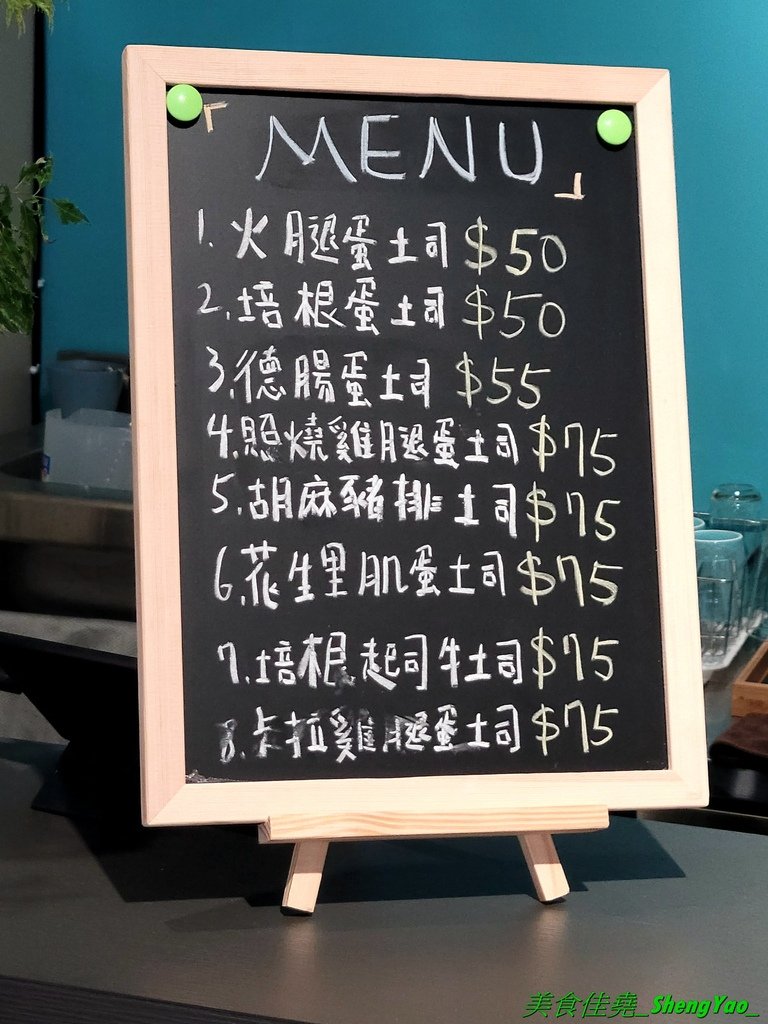 「MENU」
1. 火腿蛋土司 $50
2. 培根蛋土司 $50
3. 德腸蛋土司 $55
4. 照燒雞腿蛋土司 $75
5. 胡麻豬排土司 $75
6. 花生里肌蛋土司 $75
7. 培根起司牛土司 $75
8. 卡拉雞腿蛋土司 $75
美食佳堯_ShengYao_